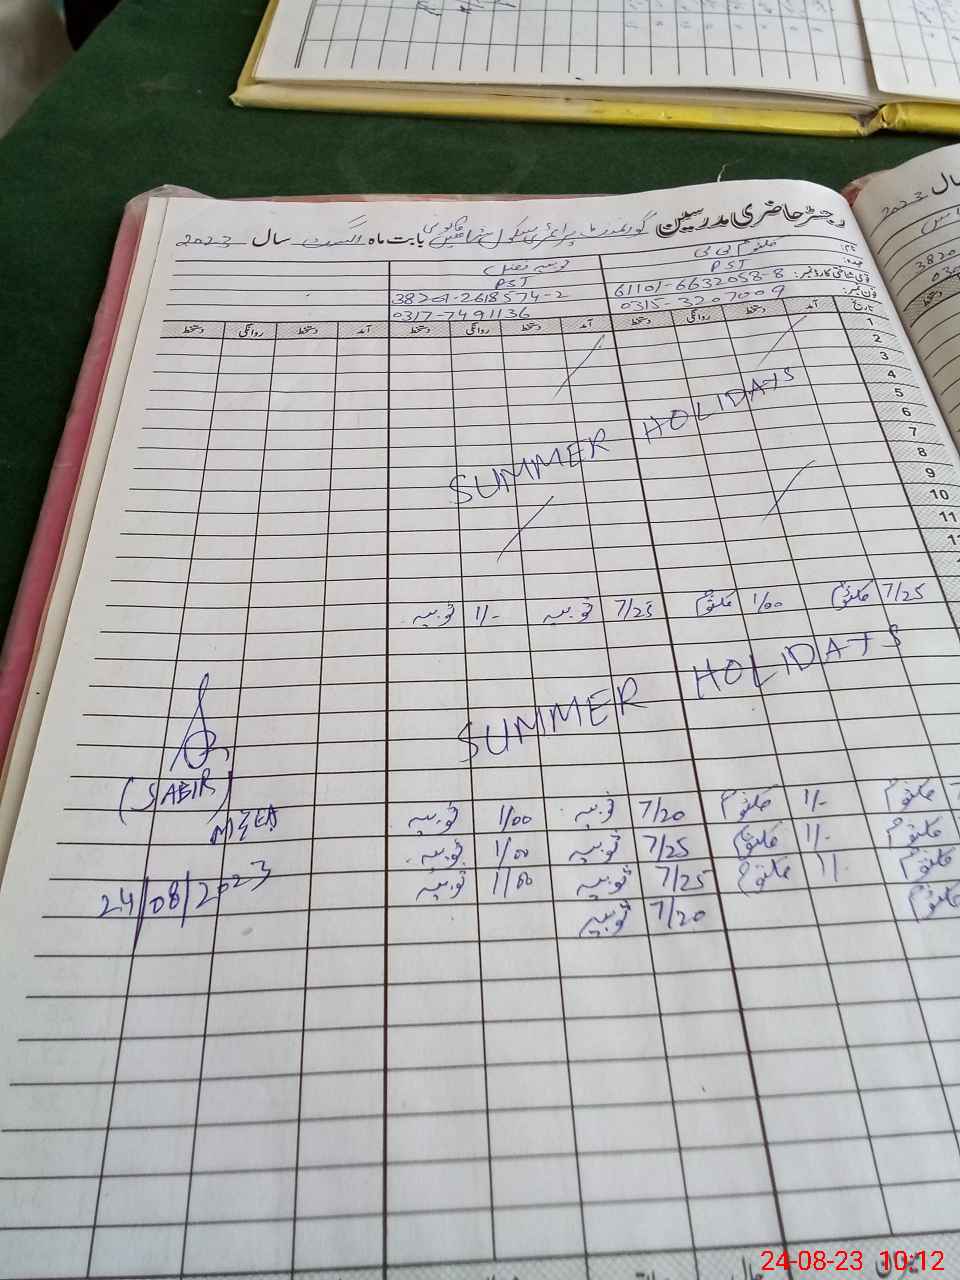 رجسٹر حاضری مدرسین گورنمنٹ پرائمری سکول بابت ماہ اگست سال 2023
نام: کلثوم بی بی ثوبیہ فضل
عہدہ: PST PST
قومی شناختی کارڈ نمبر: 61101-6632058-8 38201-2618574-2
فون نمبر: 0315-3207009 0317-7491136
تاریخ آمد دستخط روانگی دستخط آمد دستخط روانگی دستخط آمد دستخط روانگی دستخط
1
2
3
4
5
6
7
8
9
10
11
SUMMER HOLIDAYS
7/25 کلثوم 1/00 کلثوم 7/25 ثوبیہ 1/- ثوبیہ
SUMMER HOLIDAYS
کلثوم 1/- کلثوم 7/20 ثوبیہ 1/00 ثوبیہ
کلثوم 1/- کلثوم 7/25 ثوبیہ 1/00 ثوبیہ
کلثوم 1/- کلثوم 7/25 ثوبیہ 1/00 ثوبیہ
کلثوم 7/20 ثوبیہ
(SABIR)
MEA
24/08/2023
میزان
24-08-23 10:12